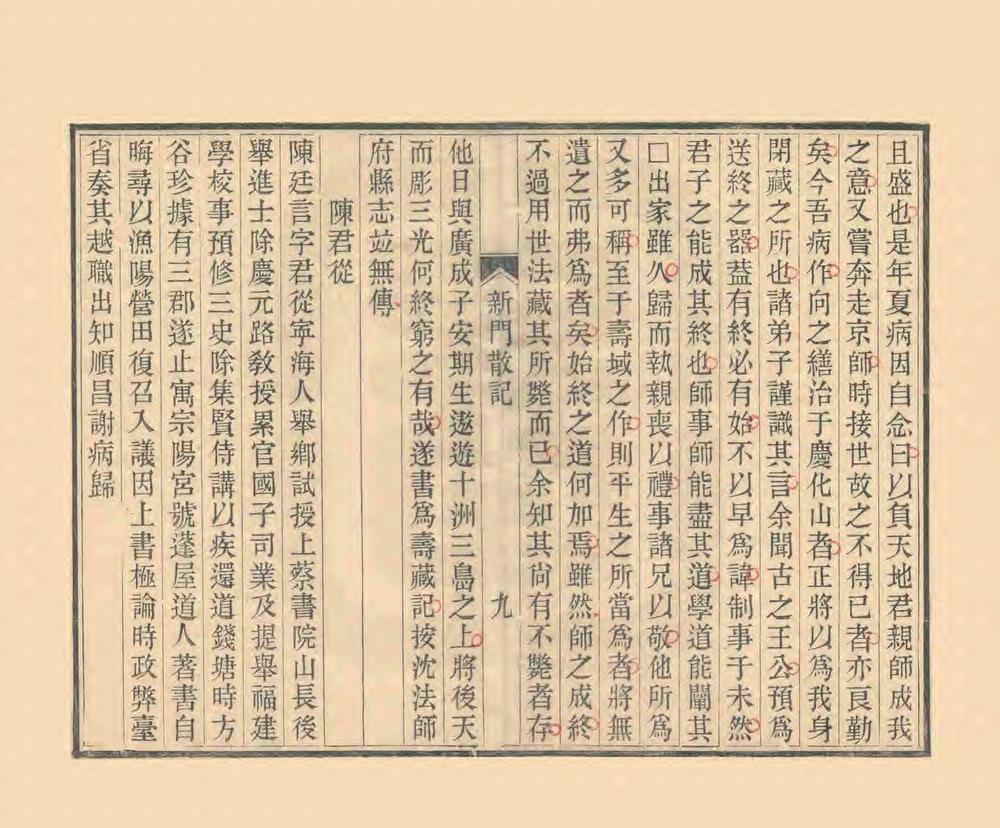 且盛也是年夏病因自念曰以負天地君親師成我
之意又嘗奔走京師時接世故之不得已者亦良勤
矣今吾病作向之繕治于慶化山者正將以為我身
閉藏之所也諸弟子謹識其言余聞古之王公預為
送終之器葢有終必有始不以早為諱制事于未然
君子之能成其終也師事師能盡其道學道能闡其
□出家雖久歸而執親喪以禮事諸兄以敬他所為
又多可稱至于壽域之作則平生之所當為者將無
遺之而弗為者矣始終之道何加焉雖然師之成終
不過用世法藏其所斃而已余知其尚有不斃者存
新門散記
九
他日與廣成子安期生遨遊十洲三島之上將後天
而彫三光何終窮之有哉遂書為壽藏記按沈法師
府縣志並無傳
陳君從
陳廷言字君從寧海人舉鄉試授上蔡書院山長後
舉進士除慶元路教授累官國子司業及提舉福建
學校事預修三史除集賢侍講以疾還道錢塘時方
谷珍據有三郡遂止寓宗陽宮號蓬屋道人著書自
晦尋以漁陽營田復召入議因上書極論時政弊臺
省奏其越職出知順昌謝病歸